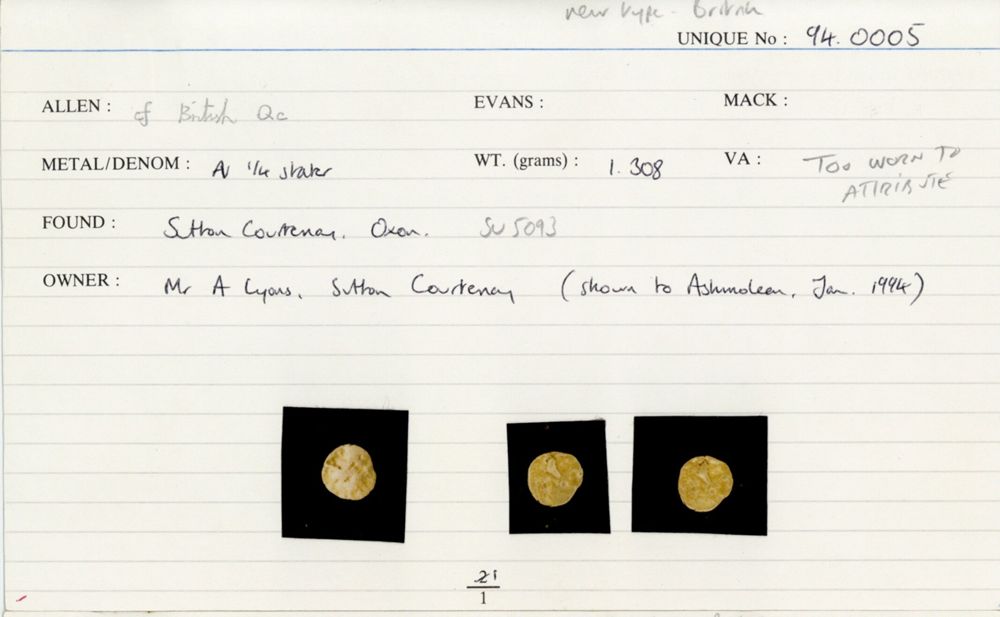 new type - British
UNIQUE No : 94.0005
ALLEN : cf British Qc EVANS : MACK :
METAL/DENOM : AV 1/4 stater WT. (grams) : 1.308 VA : TOO WORN TO
ATTRIBUTE
FOUND : Sutton Courtenay, Oxon. SU 5093
OWNER : Mr A Lyons, Sutton Courtenay (shown to Ashmolean, Jan. 1994)
21
1